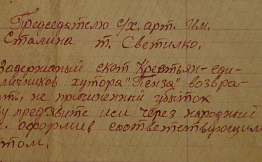 Председателю с/х. арт. Им.
Сталина т. Светилко.
Задержаный скот Крестьян-еди-
личников хутора "Пенза" возвра-
ть, не причиненный убыток
предъявите иск через народный
, оформив соответствующим
том.